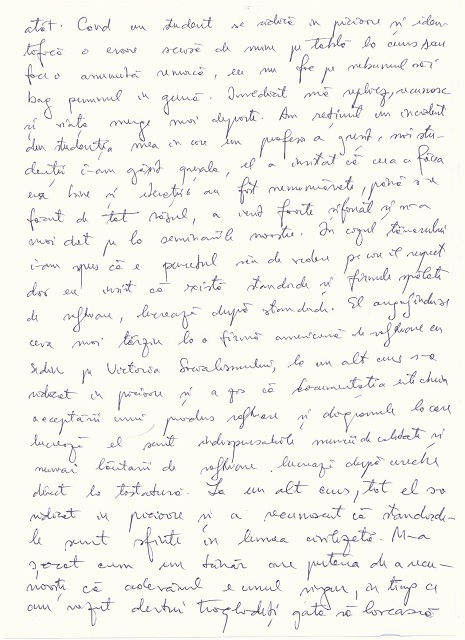 atât. Când un student se ridică în picioare și iden-
tifică o eroare scrisă de mine pe tablă la curs sau
face o anumită remarcă, eu nu fac pe nebunul să-i
bag pumnul în gură. Imediat mă repliez, recunosc
și viața merge mai departe. Am reținut un incident
din studenția mea în care un profesor a greșit, noi stu-
denții i-am găsit greșala, el a insistat că ceea ce făcea
era bine și iterațiile au fost nenumărate, până s-a
făcut de tot râsul, a ieșit foarte șifonat și n-a
mai dat pe la seminariile noastre. În cazul tânărului
i-am spus că e punctul său de vedere pe care îl respect
dar eu insist că există standarde și firmele spălate
de software, lucrează după standarde. El angajându-se
ceva mai târziu la o firmă americană de software cu
sediu pe Victoria Socialismului, la un alt curs s-a
ridicat în picioare și a zis că documentația este cheia
acceptării unui produs software și diagramele la care
lucrează el sunt indispensabile muncii de calitate și
numai lăutarii de software lucrează după ureche
direct la tastatură. La un alt curs, tot el s-a
ridicat în picioare și a recunoscut că standarde-
le sunt sfinte în lumea civilizată. M-a
șocat cum un tânăr are puterea de a recu-
noaște că adevărul e unul singur, în timp ce
am văzut destui troglodiți gata să lovească